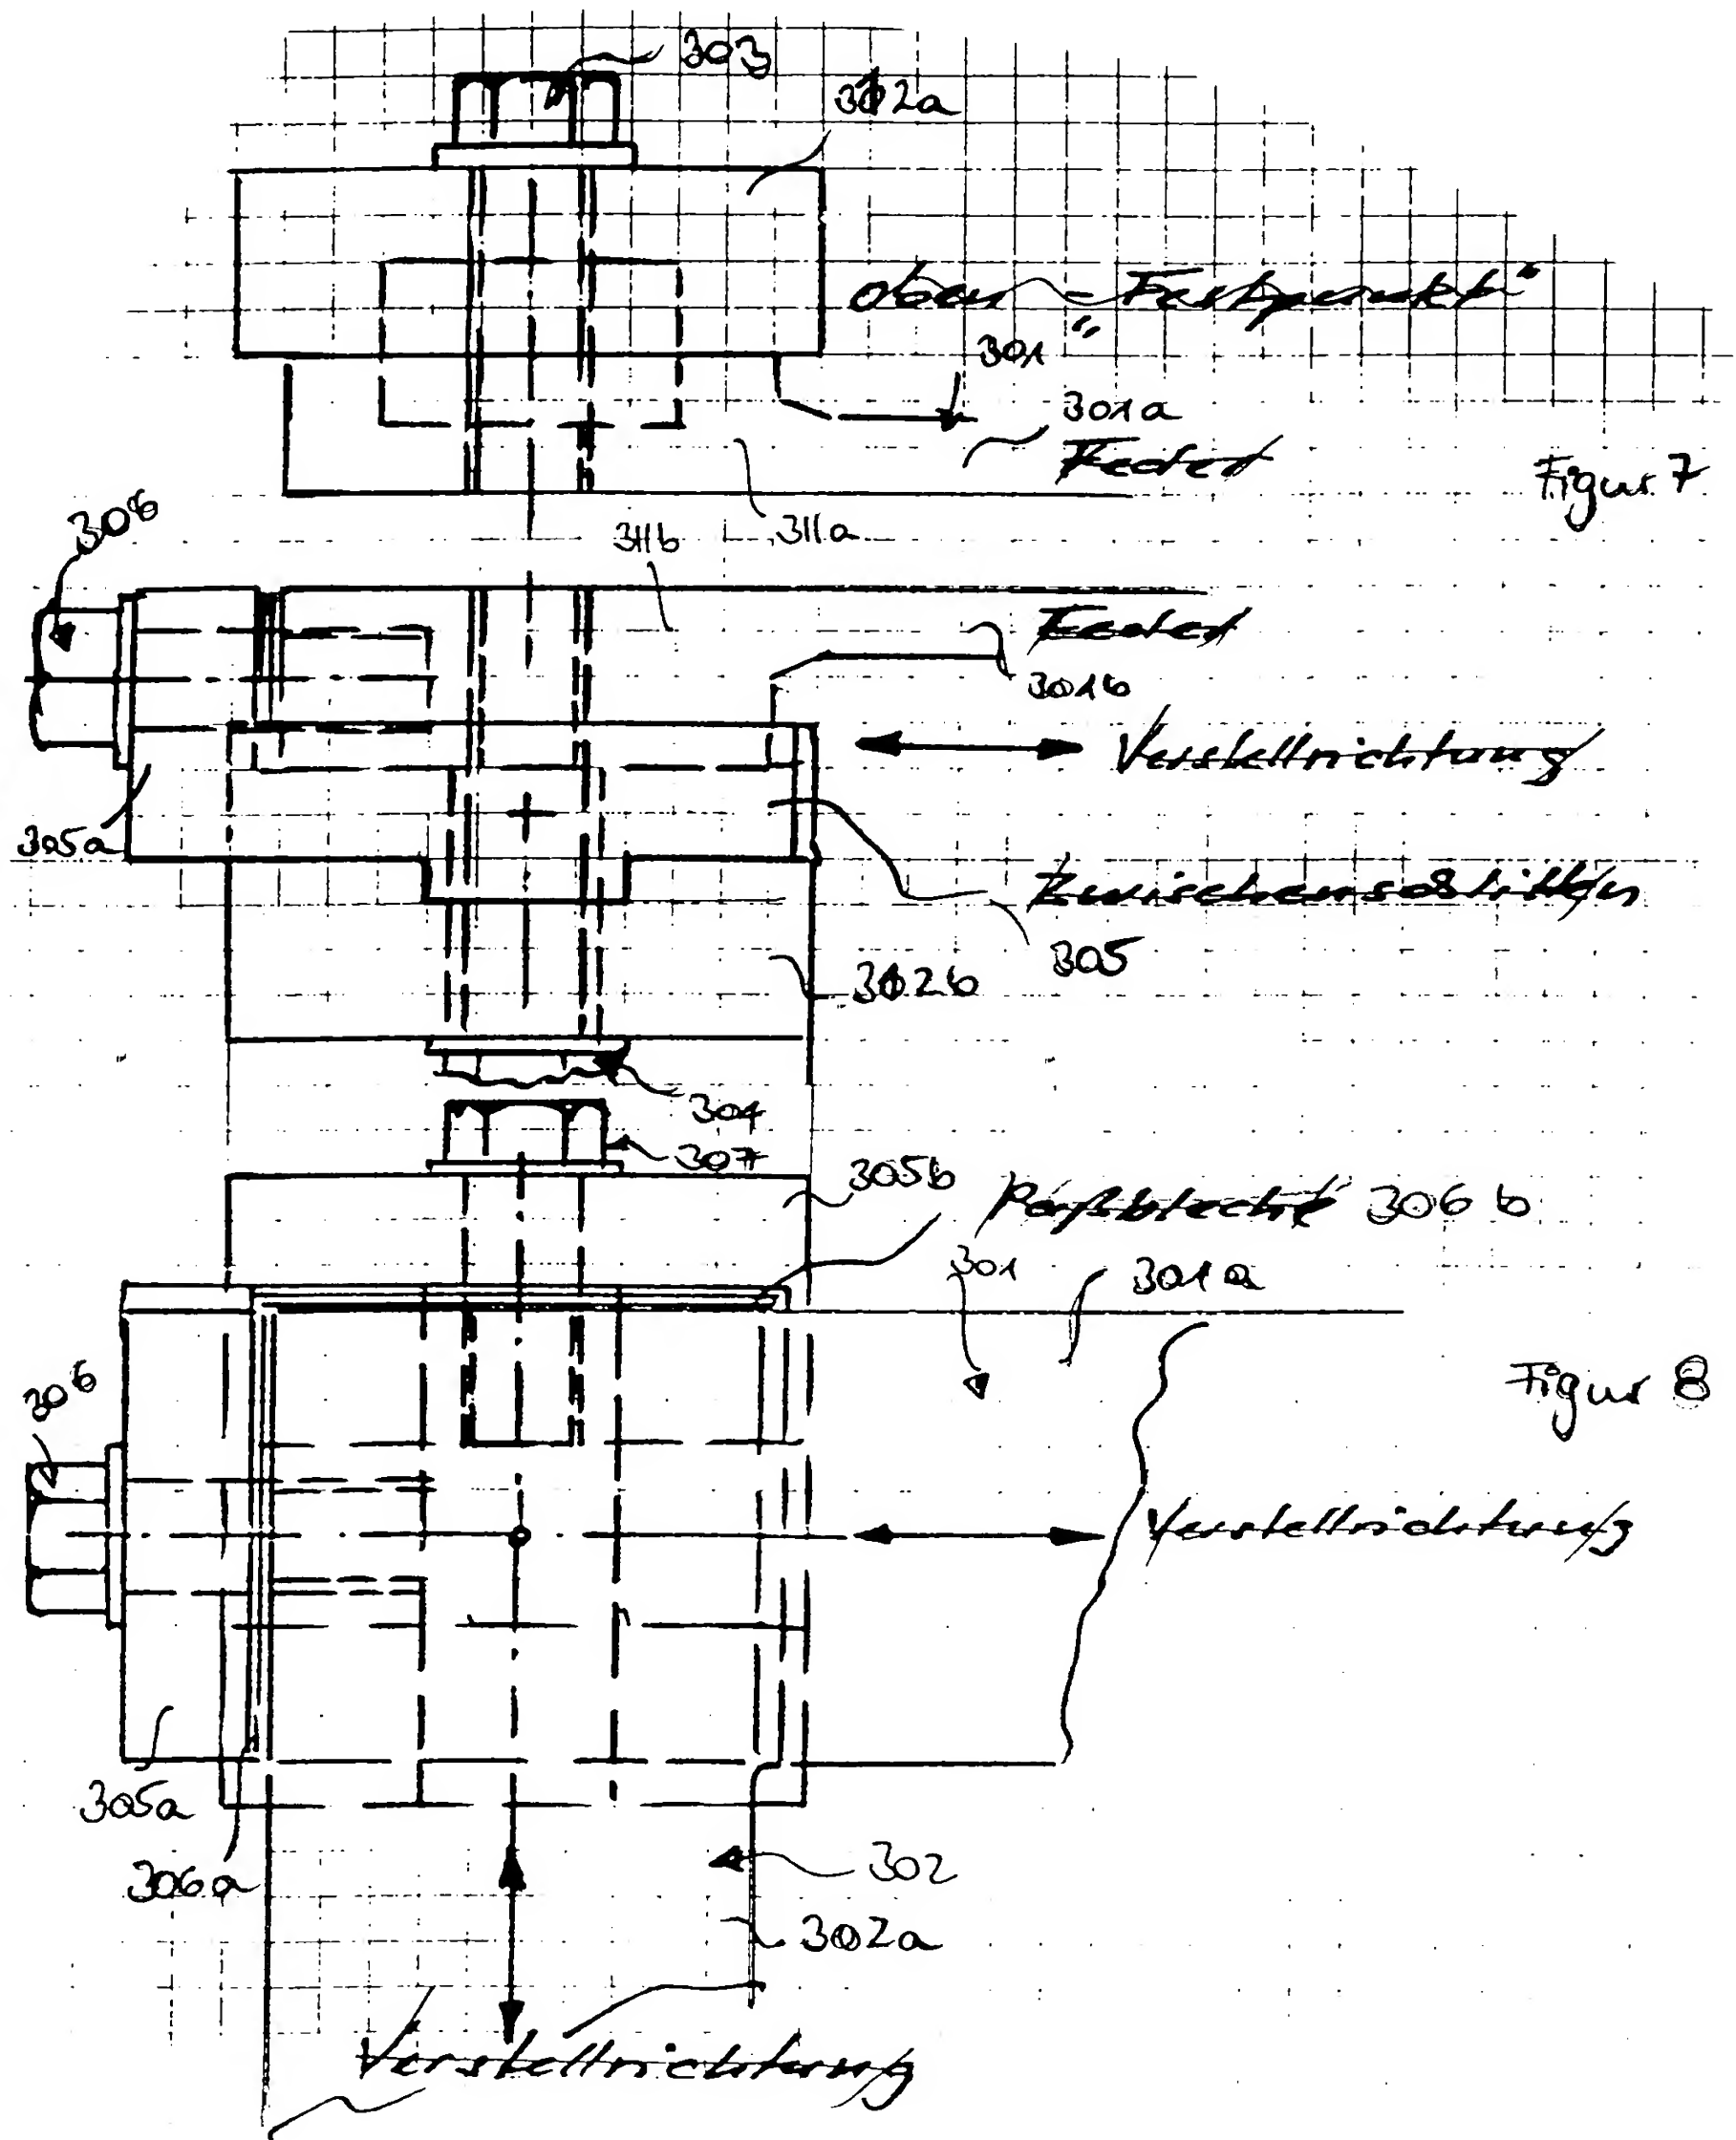 303
312a
oben = "Festpunkt"
301
301a
Feder
Figur 7
306
311b
311a
Feder
301b
Verstellrichtung
305a
305
312b
304
307
305b
Paßbleche 306b
301
301a
Figur 8
306
Verstellrichtung
305a
306a
302
302a
Verstellrichtung